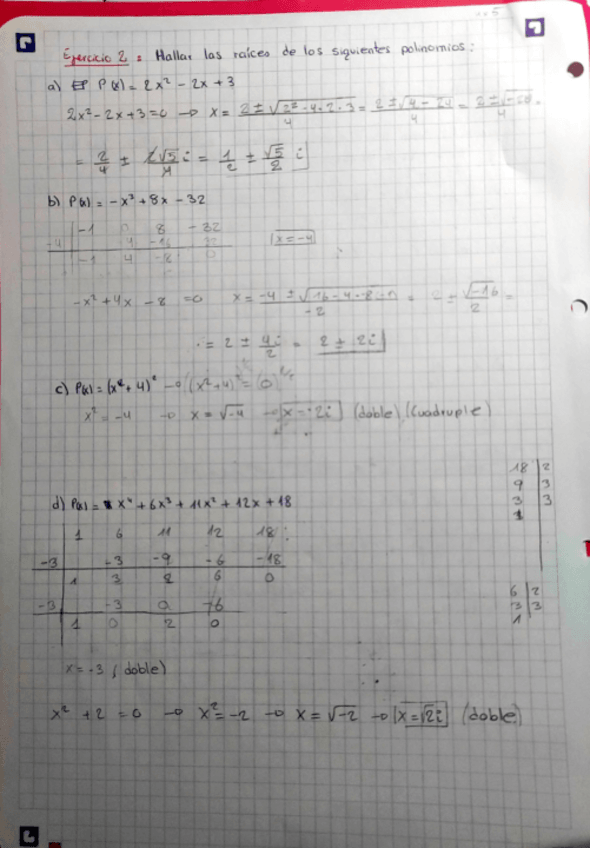 Ejercicio 2: Hallar las raíces de los siguientes polinomios:
a) P(x) = 2x² - 2x + 3
2x² - 2x + 3 = 0 → x = 2 ± √2² - 4·2·3 = 2 ± √4 - 24 = 2 ± √-20 =
4 4 4
= 2/4 ± 2√5/4 i = 1/2 ± √5/2 i
b) P(x) = -x³ + 8x - 32
-1 0 8 -32
-4 4 -16 32 x = -4
-1 4 -8 0
-x² + 4x - 8 = 0 x = -4 ± √16 - 4·8 = ± √-16 =
-2 2
= 2 ± 4i/2 = 2 ± 2i
c) P(x) = (x² + 4)² → (x² + 4)² = (0)
x² = -4 → x = √-4 → x = 2i (doble) (Cuadruple)
d) P(x) = x⁴ + 6x³ + 11x² + 12x + 18
18 2
9 3
3 3
1
1 6 11 12 18
-3 -3 -9 -6 -18
1 3 2 6 0
-3 -3 0 -6
1 0 2 0
6 2
3 3
1
x = -3 (doble)
x² + 2 = 0 → x² = -2 → x = √-2 → x = √2i (doble)